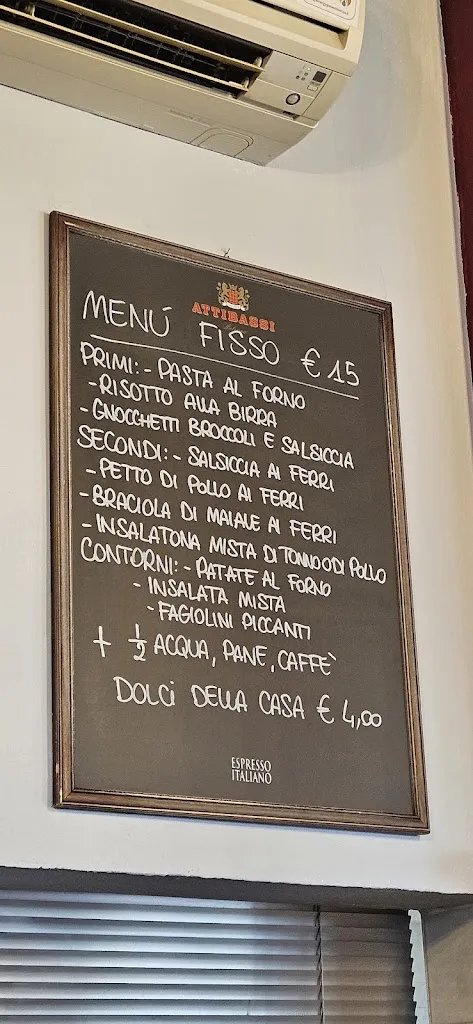 ATTIBASSI
MENÚ FISSO € 15
PRIMI: - PASTA AL FORNO
- RISOTTO ALLA BIRRA
- GNOCCHETTI BROCCOLI E SALSICCIA
SECONDI: - SALSICCIA AI FERRI
- PETTO DI POLLO AI FERRI
- BRACIOLA DI MAIALE AI FERRI
- INSALATONA MISTA DI TONNO O DI POLLO
CONTORNI: - PATATE AL FORNO
- INSALATA MISTA
- FAGIOLINI PICCANTI
+ 1/2 ACQUA, PANE, CAFFÈ
DOLCI DELLA CASA € 4,00
ESPRESSO
ITALIANO